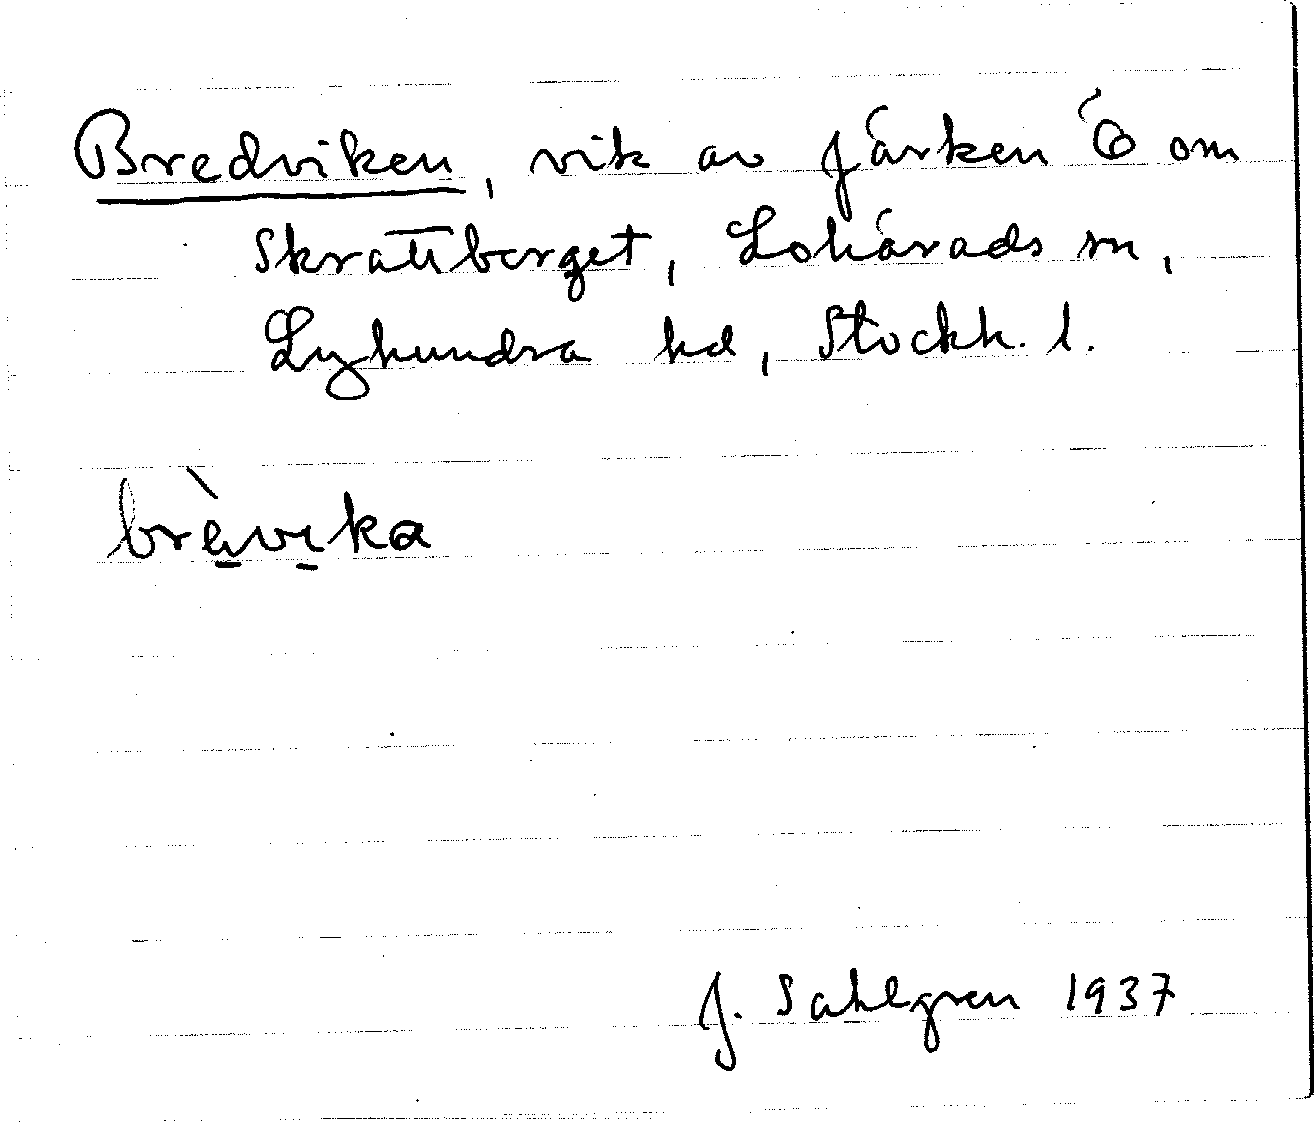 Bredviken, vik av Järken Ö om
Skrattberget, Lohärads sn,
Lyhundra hd, Stockh. l.
brèvika
J. Sahlgren 1937